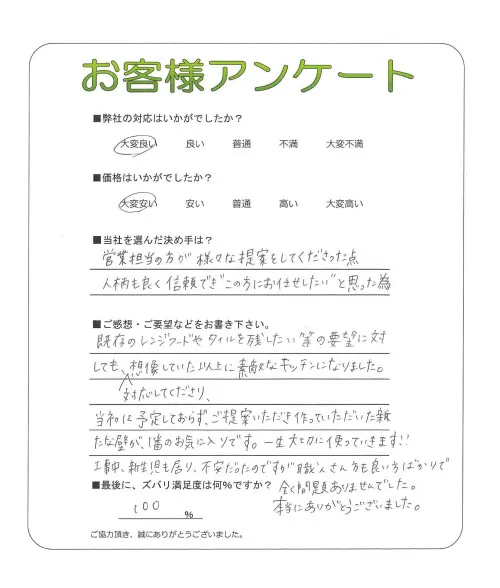 お客様アンケート
■弊社の対応はいかがでしたか？
大変良い 良い 普通 不満 大変不満
■価格はいかがでしたか？
大変安い 安い 普通 高い 大変高い
■当社を選んだ決め手は？
営業担当の方が様々な提案をしてくださった点
人柄も良く信頼でき"この方にお任せしたい"と思った為
■ご感想・ご要望などをお書き下さい。
既存のレンジフードやタイルを残したい等の要望に対
しても、想像していた以上に素敵なキッチンになりました。
対応してくださり、
当初は予定しておらず、ご提案いただき作っていただいた新
たな壁が、1番のお気に入りです。一生大切に使っていきます!!
工事中、新生児も居り、不安だったのですが職人さん方も良い方ばかりで
■最後に、ズバリ満足度は何%ですか？ 全く問題ありませんでした。
100 % 本当にありがとうございました。
ご協力頂き、誠にありがとうございました。